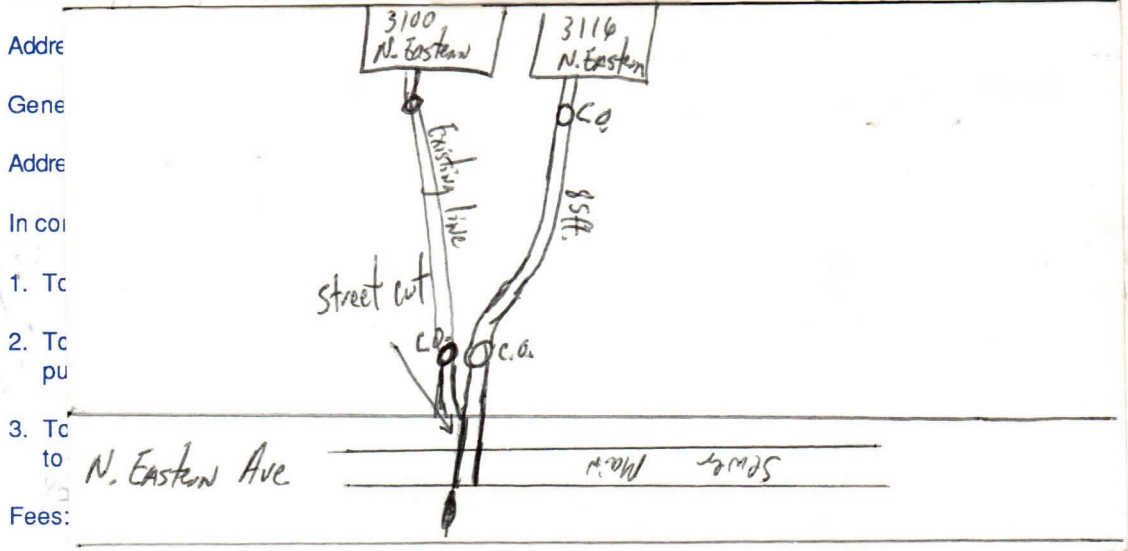 Addre
Gene
Addre
In cor
1. To
2. To
pu
3. To
to
Fees:
3100
N. Eastern
3116
N. Eastern
C.O.
Existing line
85ft.
street cut
C.O.
C.O.
N. Eastern Ave
Sewer Main